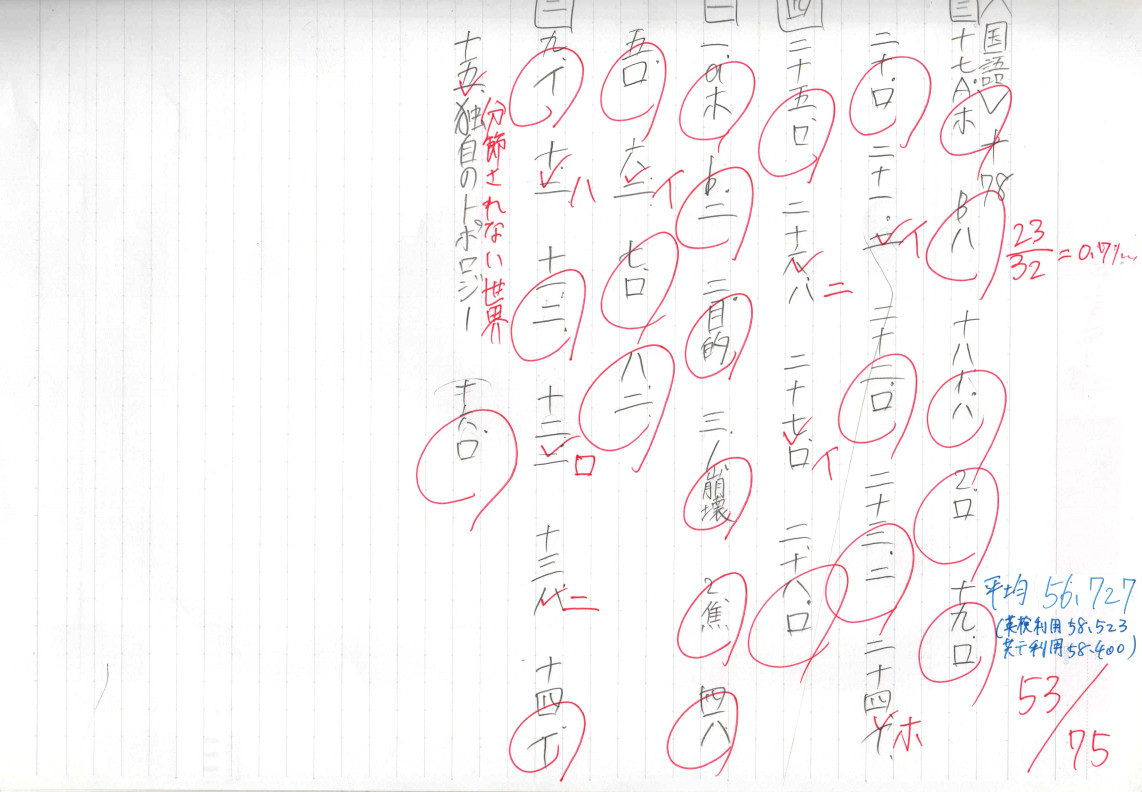 国語
十78
23/32=0.71...
平均 56.727
(英検利用58.523
共テ利用58.400)
53/75
三
十七.A.ホ B ハ 十八.1.ハ 2.ロ 十九.ロ
二十.ロ 二十一. イ 二十二.ロ 二十三.二 二十四.イ ホ
四
二十五.ロ 二十六.ハ ニ 二十七.ロ イ 二十八.ロ
一
一.aホ b.ニ 二.目的 三.1崩壊 2焦 四ハ
五.ロ 六.ニ イ 七.ロ 八.ニ
二
九.イ 十.ニ ハ 十一.ニ 十二.ニ ロ 十三 ニ 十四.イ
分節されない世界
十五.独自のトポロジー 十六.ロ